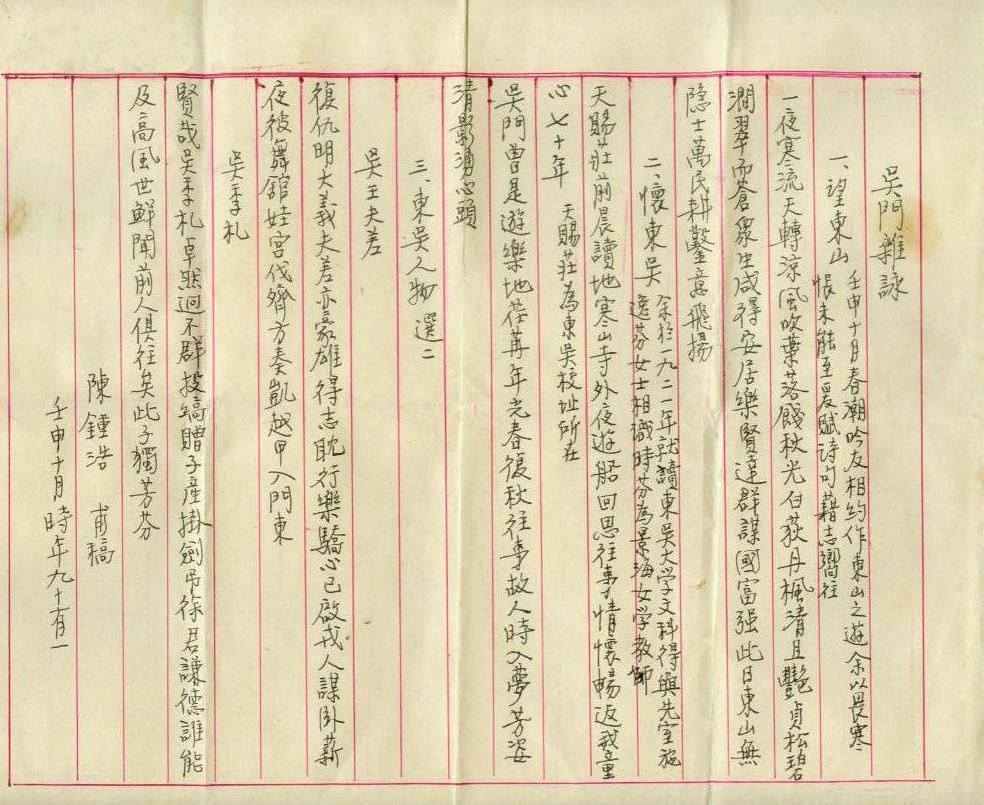 吳門雜詠
一、望東山
壬申十月春潮吟友相約作東山之遊余以畏寒
悵未能至爰賦詩句藉志嚮往
一夜寒流天轉涼風吹葉落餞秋光白荻丹楓清且艷貞松碧
澗翠而蒼眾生咸得安居樂賢達群謀國富强此日東山無
隐士萬民耕鑿意飛揚
二、懷東吳
余於一九二一年就讀東吳大学文科得與先室施
逸芬女士相識時芬為景海女学教師
天賜莊前晨讀地寒山寺外夜遊船回思往事情懷暢返我童
心七十年
天賜莊為東吳校址所在
吳門曾是遊樂地荏苒年光春復秋往事故人時入夢芳姿
清影湧心頭
三、東吳人物選二
吳王夫差
復仇明大義夫差亦豪雄得志耽行樂驕心已啟戎人謀卧薪
夜彼舞舘娃宮伐齊方奏凱越甲入門東
吳季札
賢哉吳季札卓然迥不群投縞贈子産掛劍吊徐君謙德誰能
及高風世鮮聞前人俱往矣此子獨芳芬
陳鍾浩 甫稿
壬申十月時年九十有一